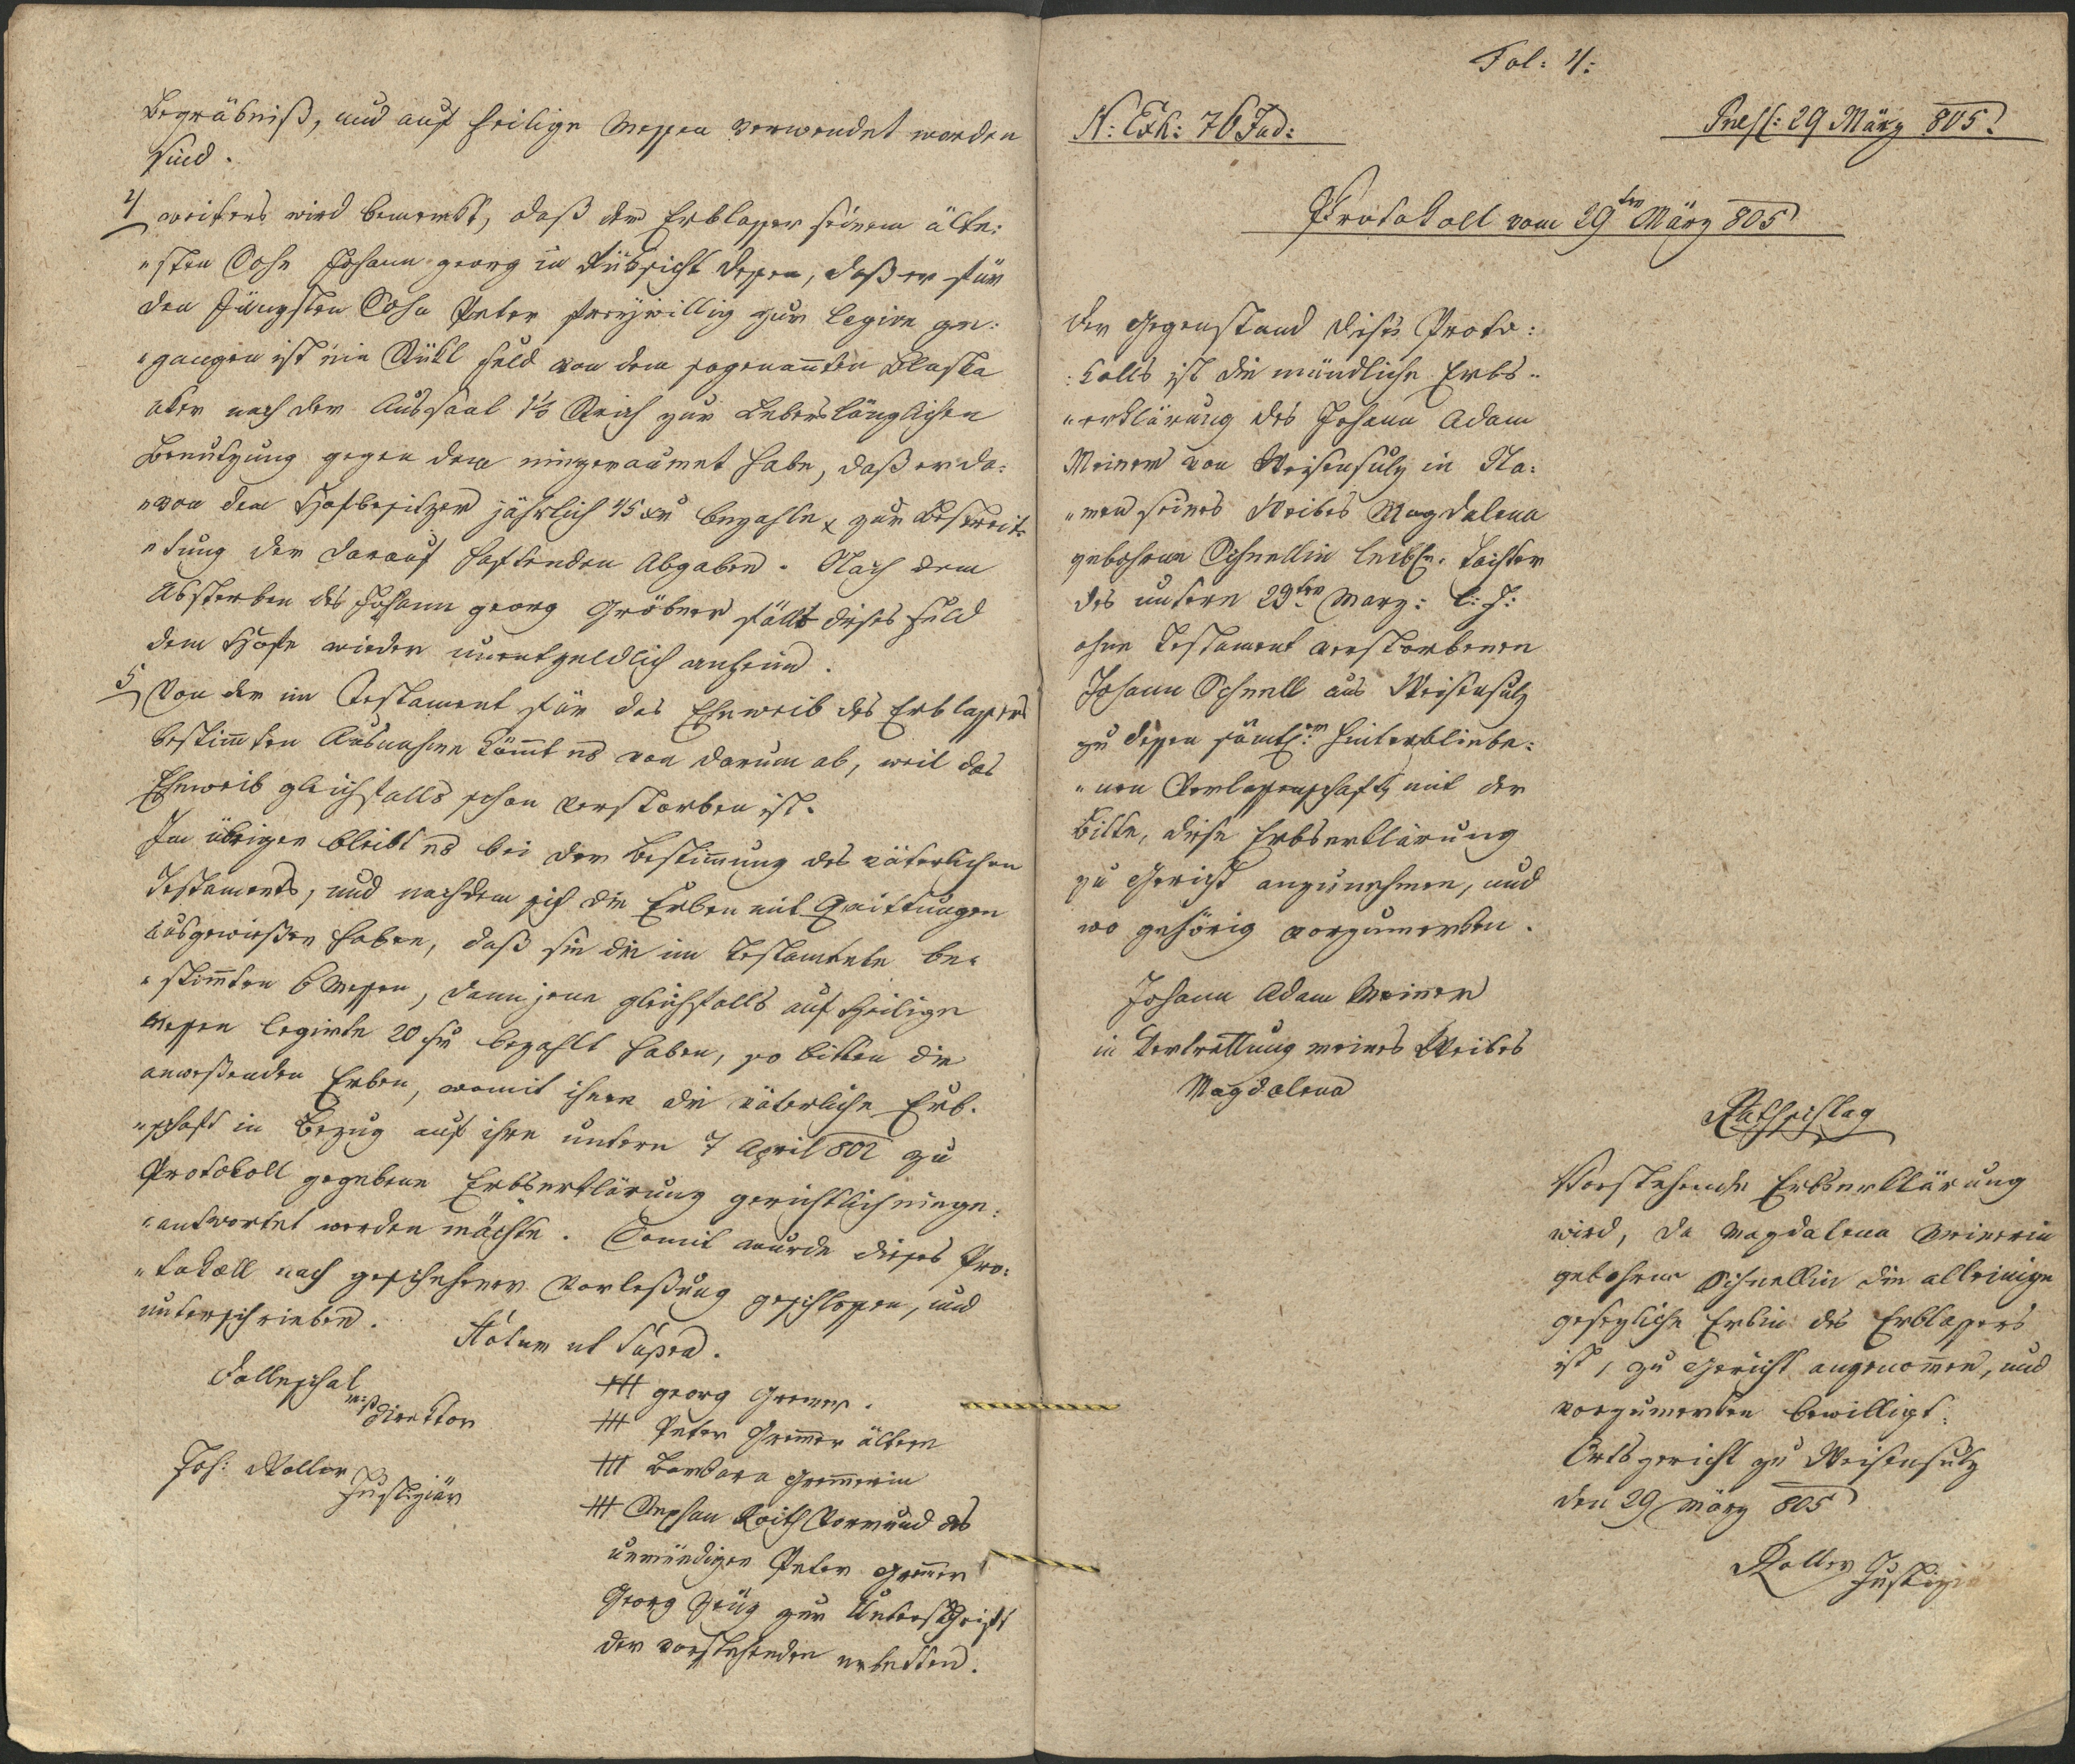 Begräbniß, und auf heilige Messen verwendet worden
sind.
4 weiters wird bemerkt, daß der Erblasser seinem älte:
"sten Sohn Johann georg in Rüksicht dessen, daß er für
den Jüngsten Sohn Peter freywillig zur Legion ge:
"gangen ist ein Stükl feld von dem sogenanten
aker nach der Aussaat 1½ Strich zur Lebenslänglichen
Benutzung gegen dem eingeraumet habe, daß er da:
"von dem Hofbesitzer jährlich 45 xr bezahle zur Bestreit:
"tung der darauf haftenden Abgaben. Nach dem
Absterben des Johann georg fällt dieses feld
dem Hofe wieder unentgeldlich anheim.
5 Von der im Testament für das Eheweib des Erblassers
bestimten Ausnahme kömt es von darum ab, weil das
Eheweib gleichfalls schon verstorben ist.
Im übrigen bleibt es bei der Bestimung des väterlichen
Testaments, und nachdem sich die Erben mit Quittungen
ausgewießen haben, daß sie die im Testamente be:
"stimten 6 Messen, dann jene gleichfalls auf heilige
Messen legirte 20 fr bezahlt haben, so bitten die
anweßenden Erben, womit ihnen die väterliche Erb:
"schaft in Bezug auf ihre unterm 7 April 802 zu
Protokoll gegebene Erbserklärung gerichtlich einge:
"antwortet werden möchte. Somit wurde dieses Pro:
"tokoll nach geschehener Vorleßung geschlossen, und
unterschrieben.
Actum ut Supra.
Direktor
Joh: Koller
Justiziär
+++ georg
+++ Peter ältern
+++ Barbara
+++ Stephan Vormund des
unmündigen Peter
Georg zur Unterschrift
der vorstehenden erbetten.
Fol: 4:
N: Exh: 76 Jud:
Præs: 29 März 805.
Protokoll vom 29ten März 805
Der Gegenstand dieses Proto:
:kolls ist die mündliche Erbs-
"erklärung des Johann Adam
Meiner von Weisensulz in Na:
"men seines Weibes Magdalena
gebohrne Schnellin leibl. Tochter
des unterm 23ten März: l: J:
ohne Testament verstorbenen
Johann Schnell aus Weisensulz
zu dessen sämtl:en hinterbliebe:
"nen Verlassenschaft, mit der
Bitte, diese Erbserklärung
zu Gericht anzunehmen, und
wo gehörig vorzumerken.
Johann Adam Meiner
in Vertrettung meines Weibes
Magdalena
Rathschlag
Vorstehende Erbserklärung
wird, da Magdalena Meinerin
gebohrne Schnellin die alleinige
gesezliche Erbin des Erblassers
ist, zu Gericht angenomen, und
vorzumerken bewilligt.
Ortsgericht zu Weisensulz
den 29 März 805
Koller Justiziär